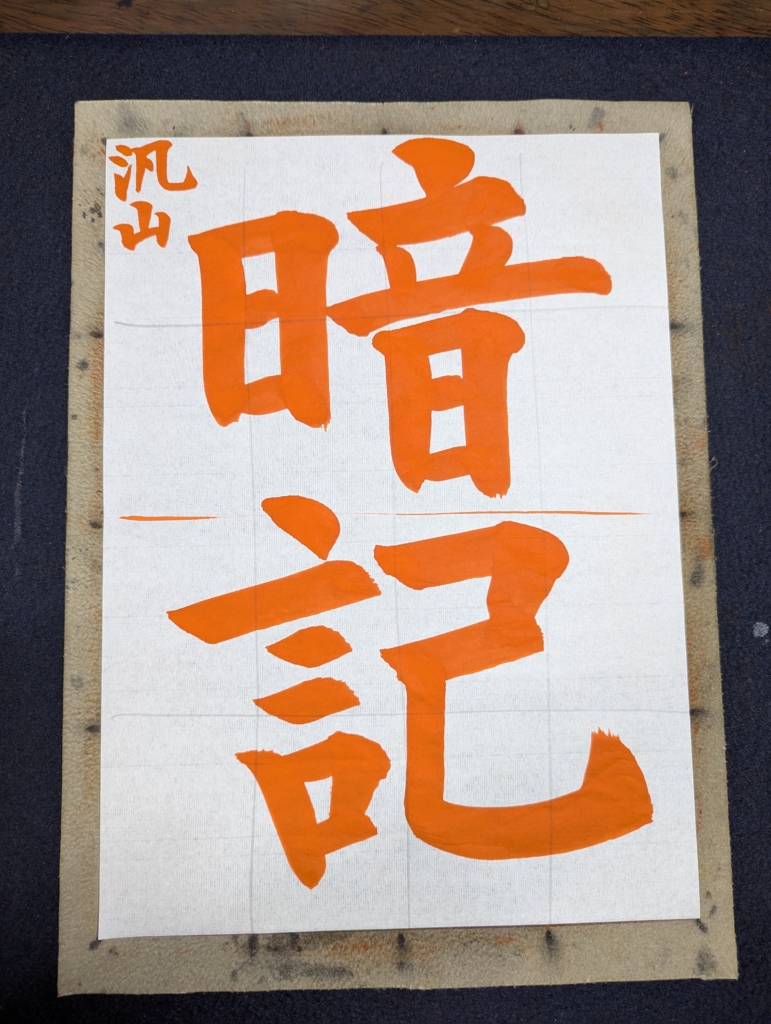 汎山
暗
記